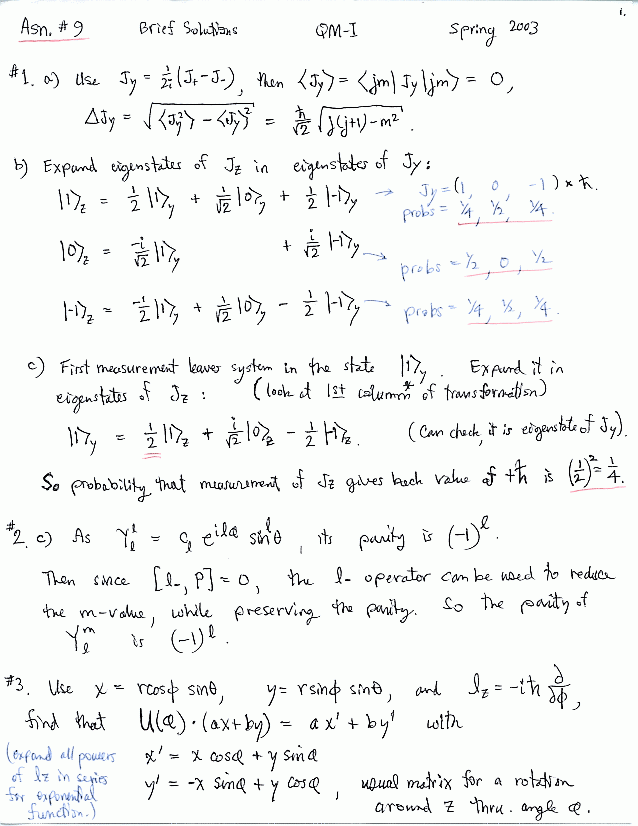 1.
Asn. #9 Brief Solutions QM-I Spring 2003
#1. a) Use Jy = 1/2i (J+ - J-), then ⟨Jy⟩ = ⟨jm| Jy |jm⟩ = 0,
ΔJy = √(⟨Jy²⟩ - ⟨Jy⟩²) = ħ/√2 √(j(j+1) - m²).
b) Expand eigenstates of Jz in eigenstates of Jy:
|1⟩z = 1/2 |1⟩y + 1/√2 |0⟩y + 1/2 |-1⟩y → Jy = (1, 0, -1) × ħ.
probs = 1/4, 1/2, 1/4.
|0⟩z = -i/√2 |1⟩y + i/√2 |-1⟩y → probs = 1/2, 0, 1/2
|-1⟩z = -1/2 |1⟩y + 1/√2 |0⟩y - 1/2 |-1⟩y → probs = 1/4, 1/2, 1/4.
c) First measurement leaves system in the state |1⟩y. Expand it in
eigenstates of Jz: (look at 1st column* of transformation)
|1⟩y = 1/2 |1⟩z + i/√2 |0⟩z - 1/2 |-1⟩z. (Can check, it is eigenstate of Jy).
So probability that measurement of Jz gives back value of +ħ is (1/2)² = 1/4.
#2. c) As Yₗˡ = Cₗ e^{ilφ} sinˡθ, its parity is (-1)ˡ.
Then since [l-, P] = 0, the l- operator can be used to reduce
the m-value, while preserving the parity. So the parity of
Yₗᵐ is (-1)ˡ.
#3. Use x = r cosϕ sinθ, y = r sinϕ sinθ, and lz = -iħ ∂/∂ϕ,
find that U(φ)·(ax+by) = ax' + by' with
(expand all powers x' = x cosφ + y sinφ
of lz in series y' = -x sinφ + y cosφ, usual matrix for a rotation
for exponential
function.) around z thru. angle φ.